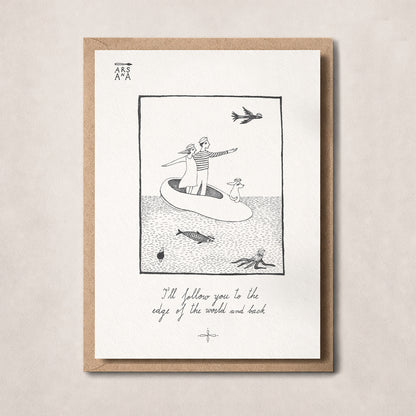 ARS
ANA
I'll follow you to the
edge of the world and back